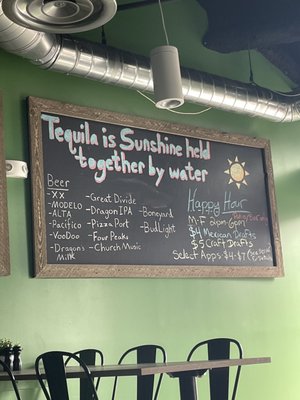 Tequila is Sunshine held
together by water
Beer
-XX
-MODELO
-ALTA
-Pacifico
-VooDoo
-Dragons
Milk
-Great Divide
-Dragon IPA
-Pizza Port
-Four Peaks
-Church Music
-Boneyard
-Bud Light
Happy Hour
M-F 2pm-6pm
$4 Mexican Drafts
$5 Craft Drafts
Select Apps $4-$7